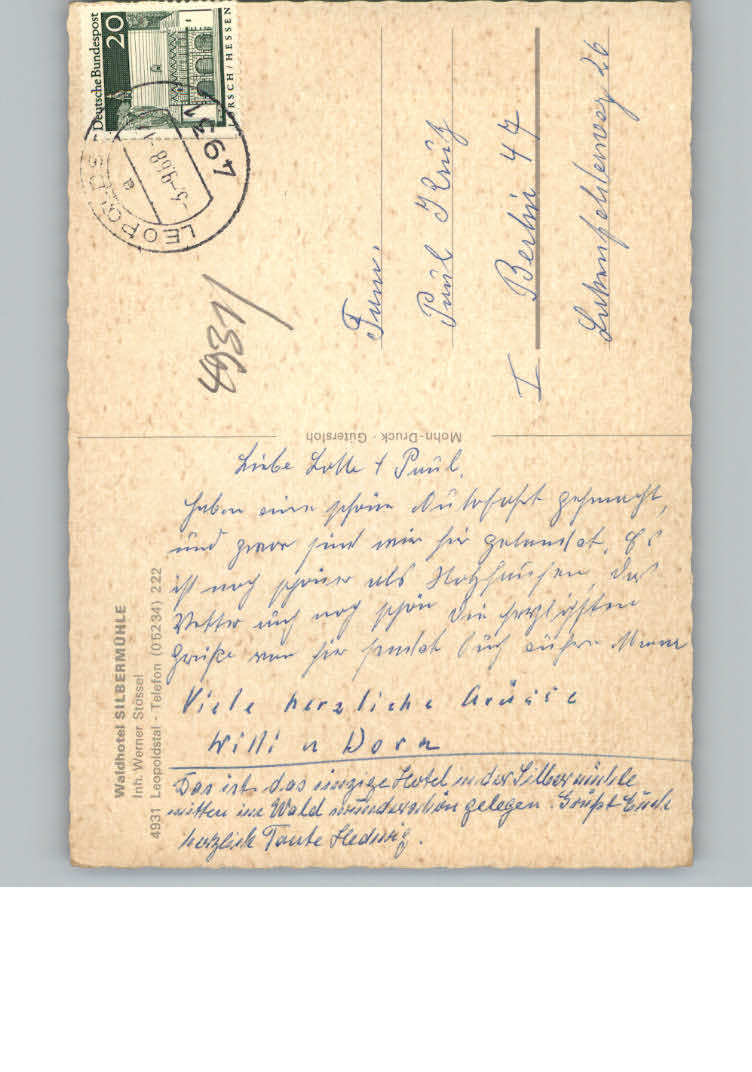 Deutsche Bundespost
20
RSCH/HESSEN
4931
LEOPOLDS
-5-9.68-
a
Fam.
Paul Krug
I Berlin 47
26
Mohn-Druck · Gütersloh
Waldhotel SILBERMÜHLE
Inh. Werner Stössel
4931 Leopoldstal - Telefon (05234) 222
Liebe Lotte + Paul.
Haben eine schöne Autofahrt gemacht,
und zwar sind wir hier gelandet. Es
ist noch schöner als Holzhausen, das
Wetter auch noch schön Die herzlichsten
Grüße von hier sendet Euch
Viele herzliche Grüsse
Willi u Dora
Das ist das einzige Hotel in der Silbermühle
mitten im Wald wunderschön gelegen. Grüßt Euch
herzlich Tante Hedwig.